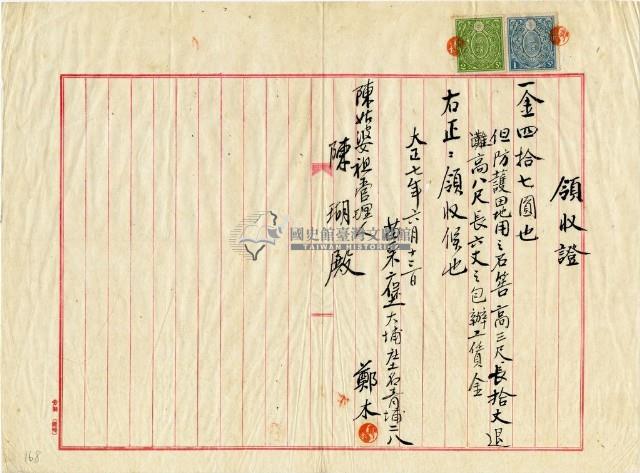 領收證
一金四拾七圓也
但防護田地用之石笱高三尺長拾丈退
灘高八尺長六丈之包辦工賃金
右正ニ領收候也
大正七年六月十三日
苗栗一堡大埔庄土名青埔二八
鄭木
陳姑婆祖管理人
陳瑚殿
國史館臺灣文獻館
TAIWAN HISTORICA
168